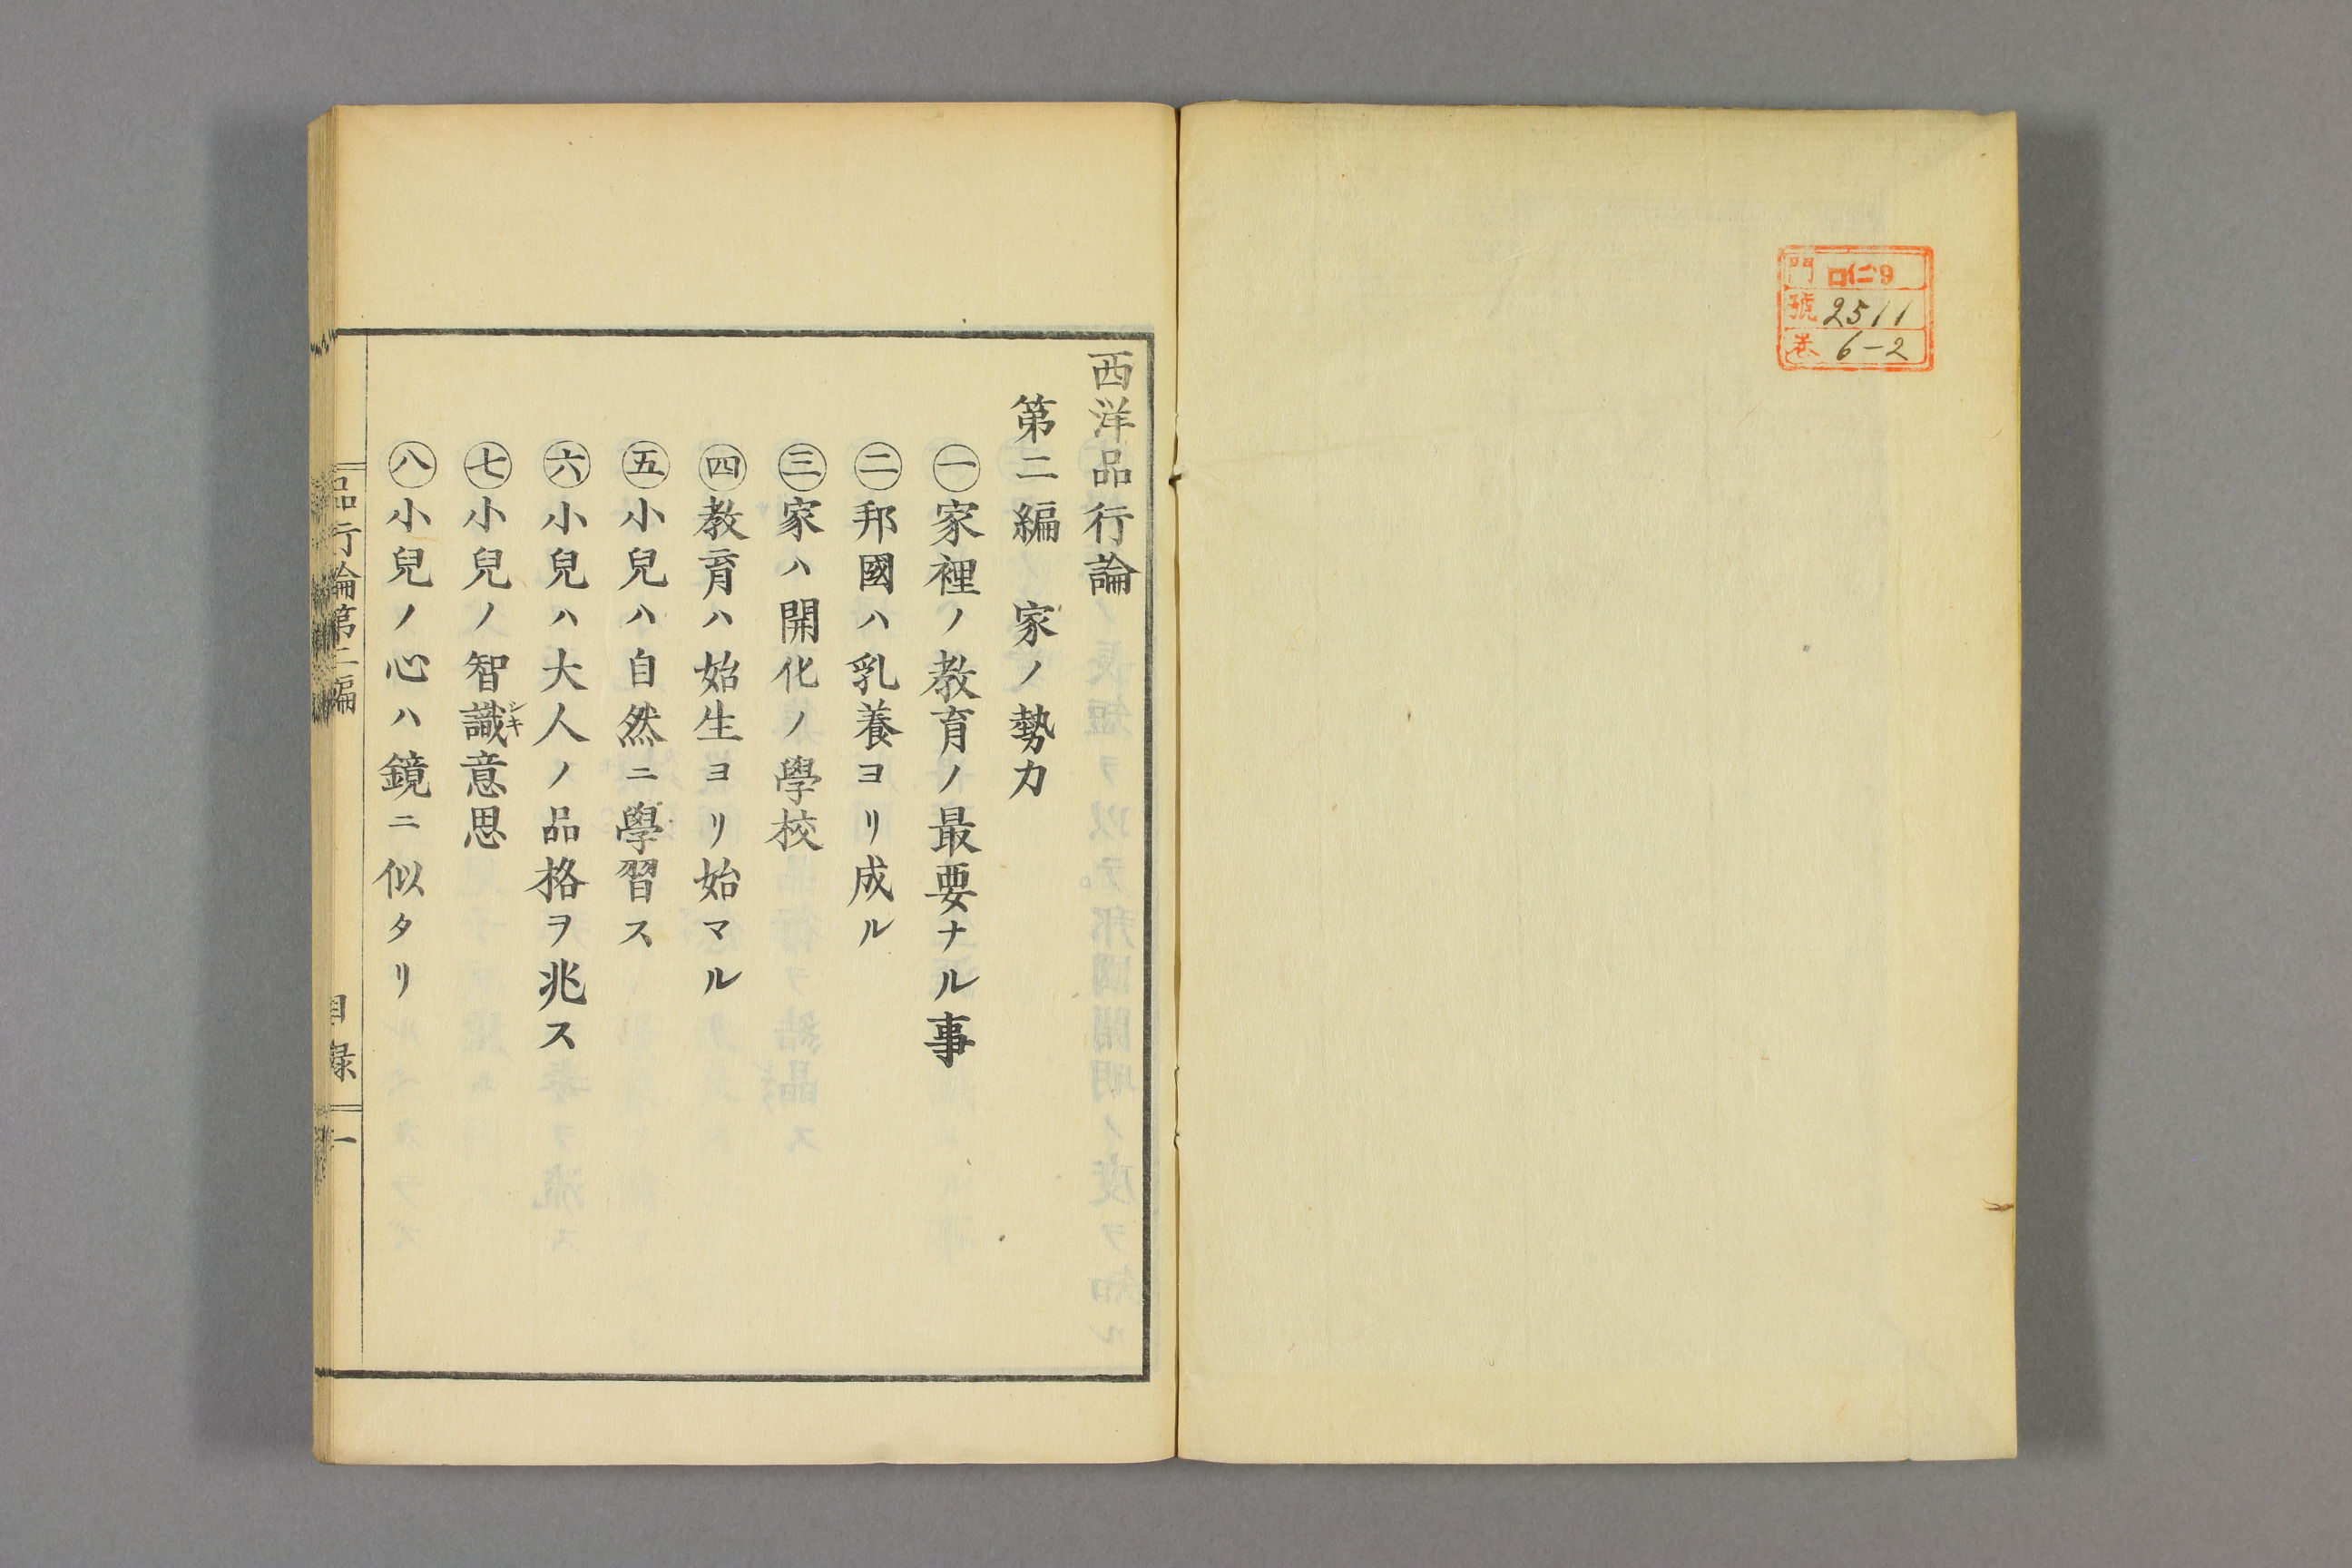 門 ロ仁9
號 2511
巻 6-2
西洋品行論
第二編 家ノ勢力
㊀家裡ノ教育ノ最要ナル事
㊁邦國ハ乳養ヨリ成ル
㊂家ハ開化ノ學校
㊃教育ハ始生ヨリ始マル
㊄小兒ハ自然ニ學習ス
㊅小兒ハ大人ノ品格ヲ兆ス
㊆小兒ノ智識意思
シキ
㊇小兒ノ心ハ鏡ニ似タリ
品行論第二編 目録 一